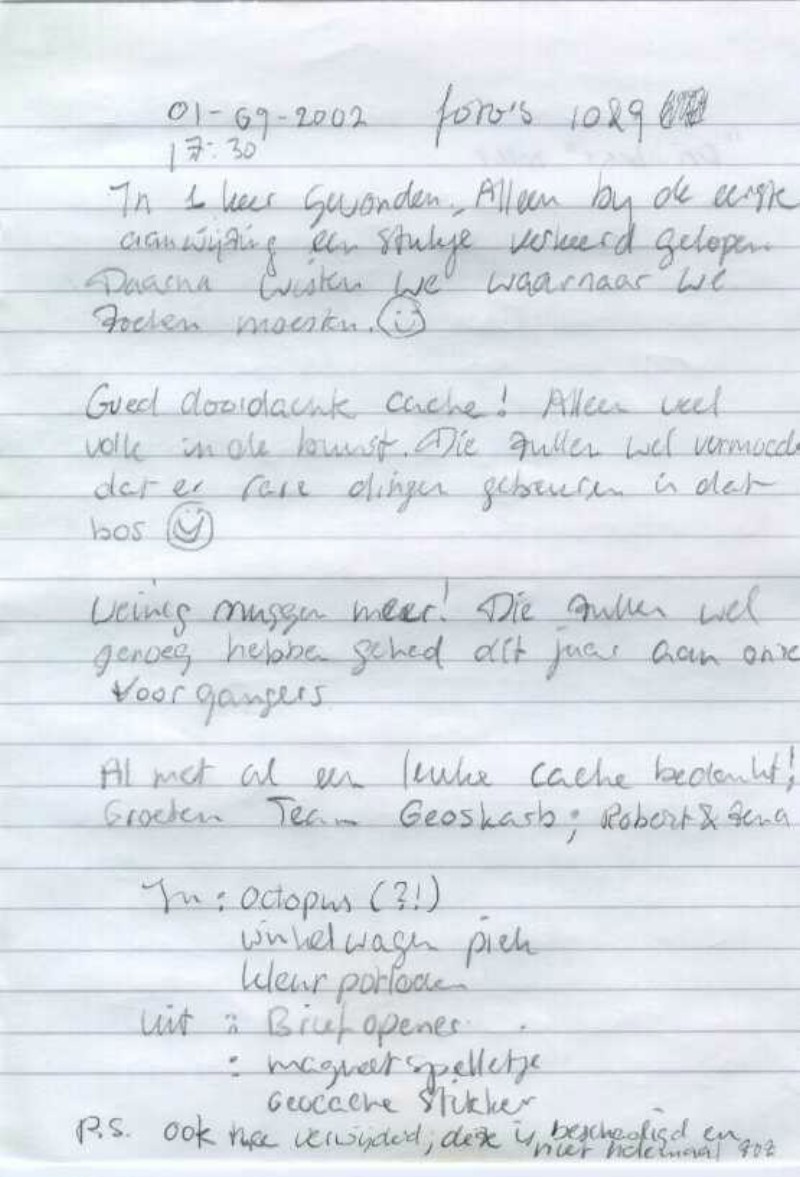 01-09-2002 foto's 10&9
17:30
In 1 keer gevonden. Alleen by de eerste
aanwijzing een stukje verkeerd gelopen.
Daarna wisten we waarnaar we
zoeken moesten.
Goed doordachte cache! Alleen veel
volk in de buurt. Die zullen wel vermoede
dat er rare dingen gebeuren in dat
bos
Weinig muggen meer! Die zullen wel
genoeg hebben gehad dit jaar aan onze
voorgangers
Al met al een leuke cache bedankt!
Groeten Team Geoskarb; Robert &
In: Octopus (?!)
winkelwagen piek
kleur potloden
Uit : Briefopener
: magneetspelletje
Geocache Stikker
P.S. ook verwijderd; deze is beschadigd en
niet helemaal